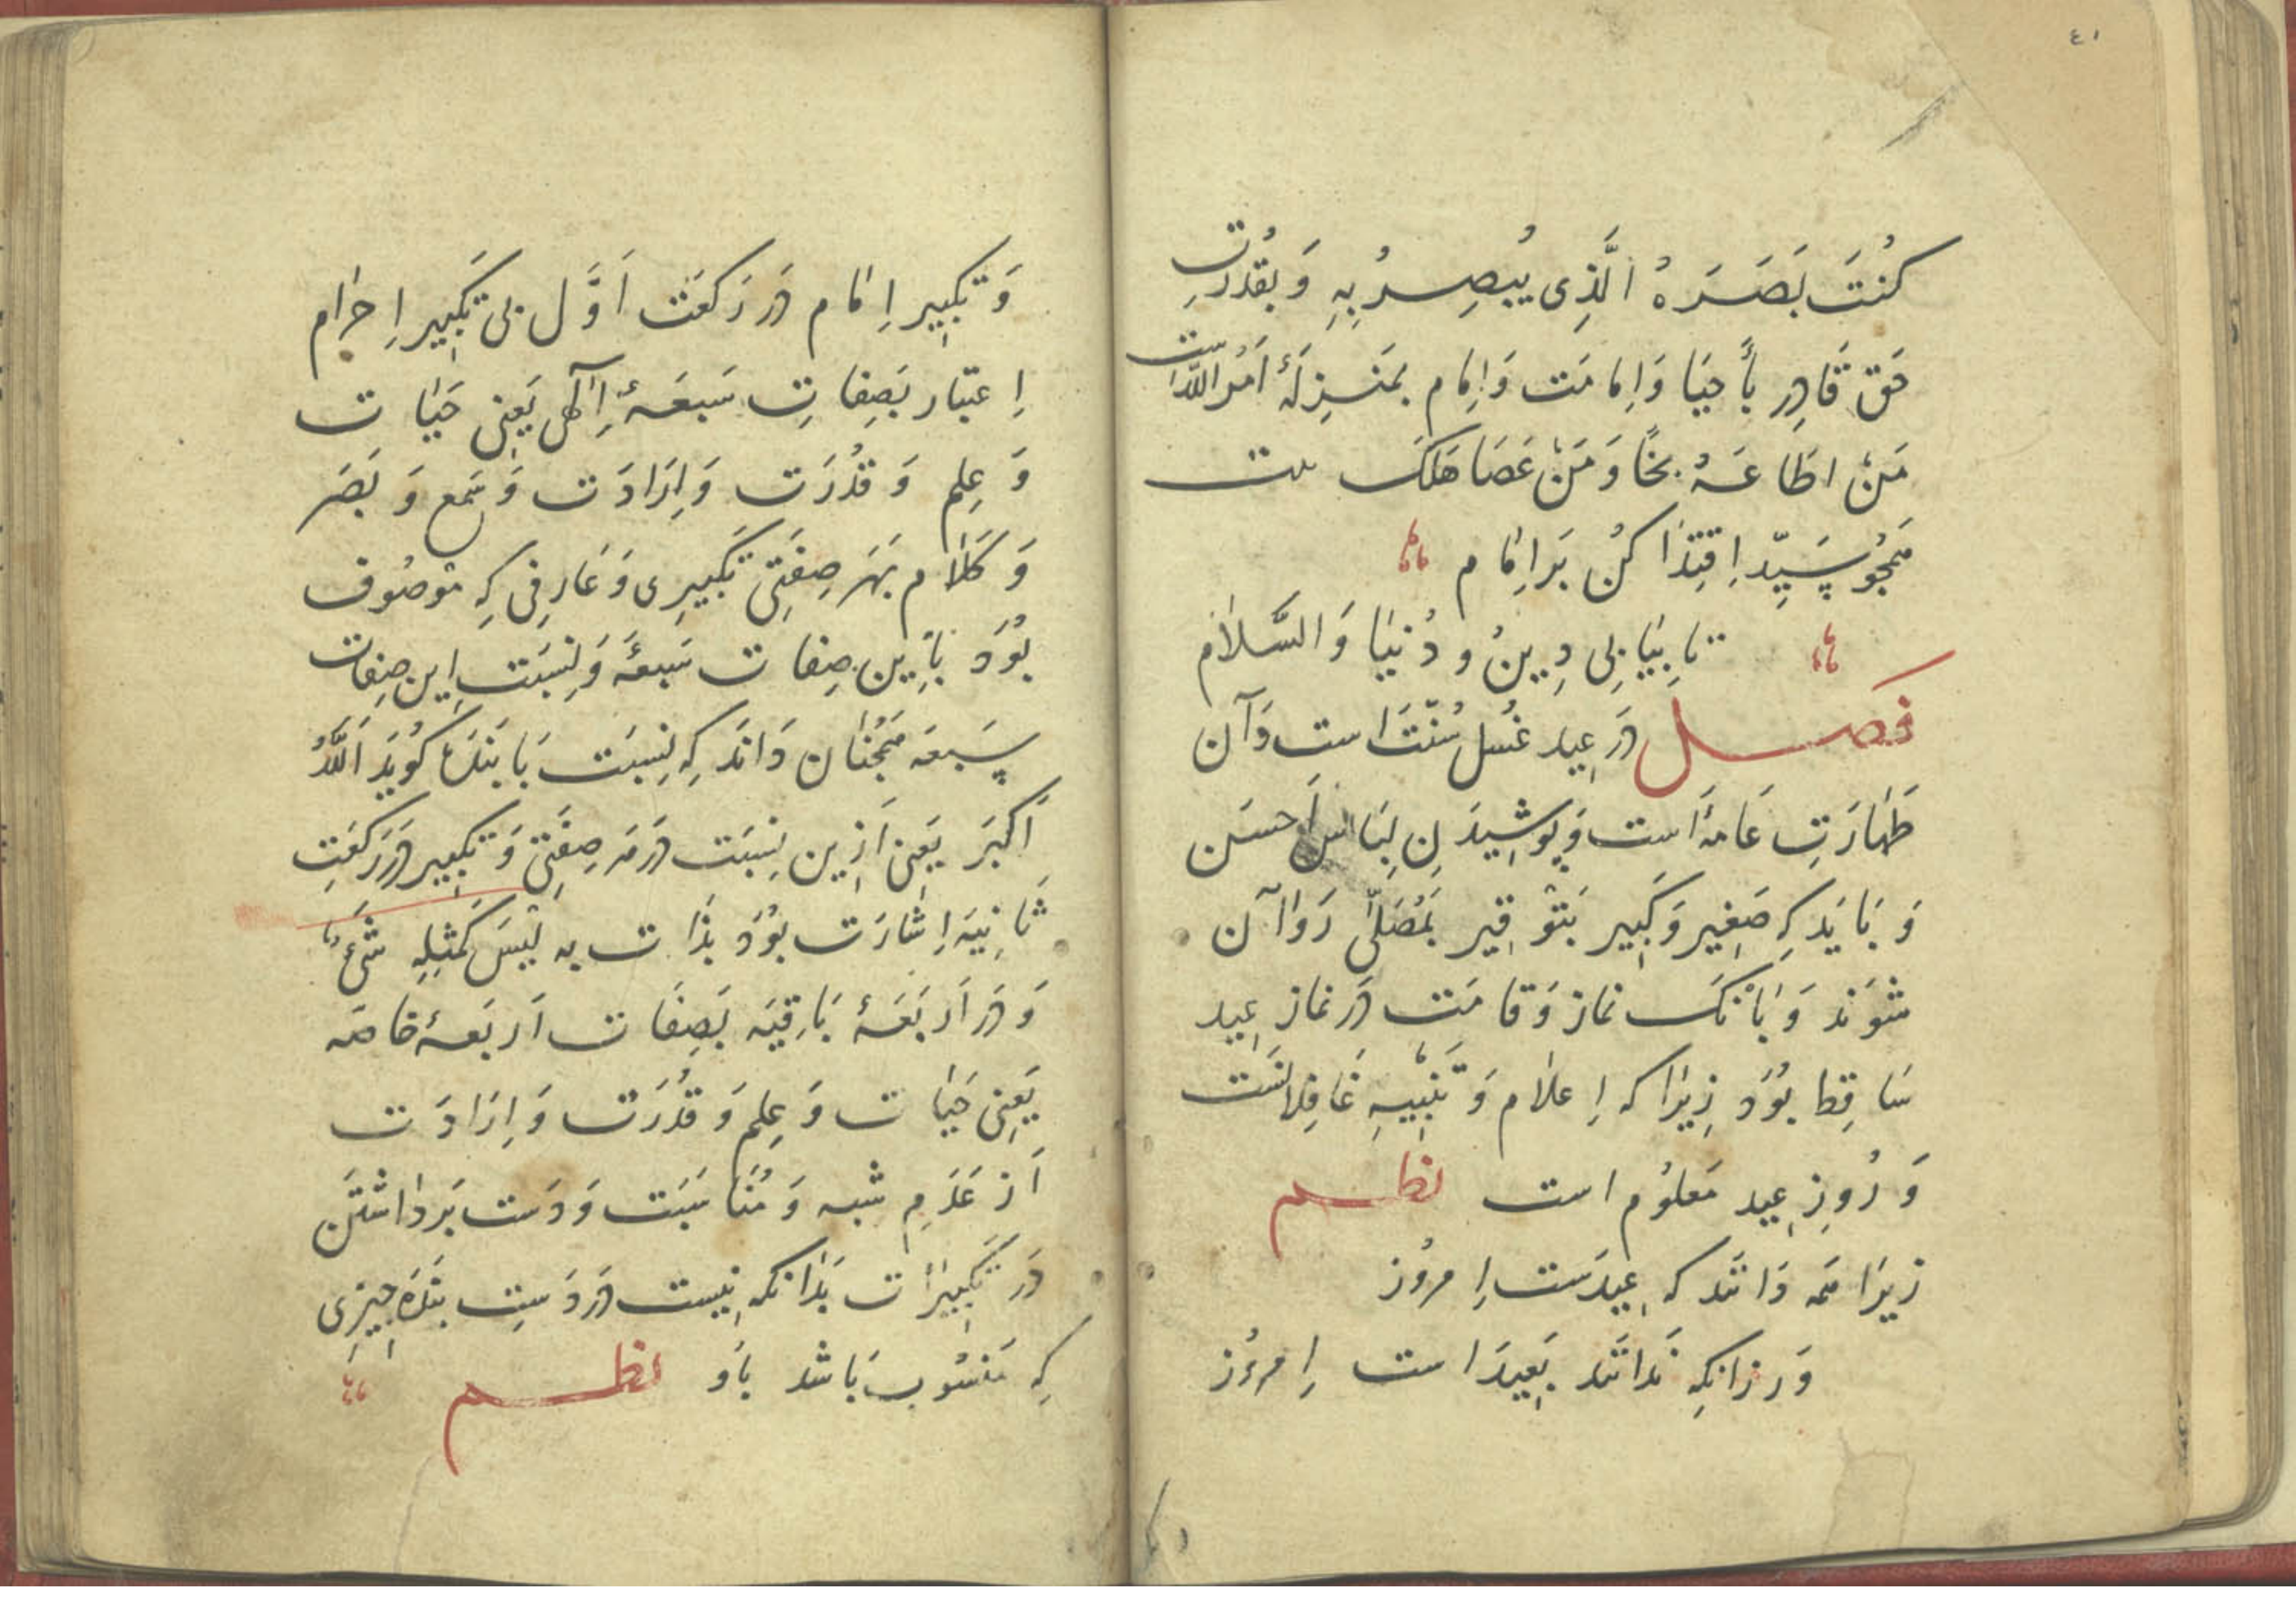 ٤١
كُنْتَ بَصَرَهُ الَّذِى يُبْصِرُ بِهِ وَ بقُدْرَتِ
حَق قَادِرِ بأَحيَا وَاِمامَت وَاِمام بمَنزِلَهٔ اَمْرُ اللّٰه است
مَنْ اطَاعَهُ نجَا وَمَنْ عَصَا هَلَكَ بیت
همَچُو سَیّد اِقتِدَا کُن بَر اِمَام
تا بیَابی دِین و دُنیَا وَالسَّلاَم
فصل دَر عِید غُسل سُنّتَ است وَآن
طَهَارَتِ عَامَهٔ است وَپوشِیدَنِ لِبَاس اَحسَن
وَ بَایَد کِه صَغِیر وَکَبِیر بَتَوقِیر بَمُصَلّٰی رَوٰان
شَوَند وَ بَانْکَ نماز وَقامَت دَر نماز عِید
سَاقِط بُوَد زِیرَا که اِعلاَم وَ تَنبِیهِ غَافِلاَنَست
وَ رُوزِ عِید مَعلوُم است نظم
زیرَا همَه دَانند که عِیدَست اِمرُوز
وَر زانکِه نَدانَند بَعِیدَ است اِمرُوز
وَ تکبِیرِ اِمَام دَر رَکعَت اَوَّل بی تَکبِیر اِحرٰام
اِعتبَار بَصِفاتِ سَبعَهٔ اِلٰهی یَعنِی حَیَات
وَ عِلم وَ قدُرَت وَاِرَادَت وَ سَمع وَ بَصَر
وَ کَلاَم بَهَر صِفَتِی تَکبِیرِی وَ عَارِفی کِه مَوصُوف
بُوَد بَاِین صِفات سَبعَه وَ نِسبَت اِین صِفات
سَبعَه همَچُنَان دَانَد کِه نِسبَت بَا بَندَهٔ کُویَد اَللّٰهُ
اَکبَر یَعنِی اَزِین نِسبَت دَر هَر صِفَتِی وَ تکبِیر دَر رَکعَتِ
ثَانِیَه اِشَارَت بوُدَ بذَات به لَیسَ کَمثِلِهِ شَیءٌ
وَ دَر اَربَعَهٔ بَاقِیَه بَصِفَات اَربَعهٔ خاصّه
یَعنِی حَیَات وَ عِلم وَ قدُرَت وَ اِرَادَت
اَز عَدَمِ شبه وَ مُنَاسَبَت وَ دَست بَردَاشتَن
دَر تَکبِیرَات بَدَانکه نِیست دَر دَستِ بَندَه چِیزِی
کِه مَنسُوب بَاشد باو نظم